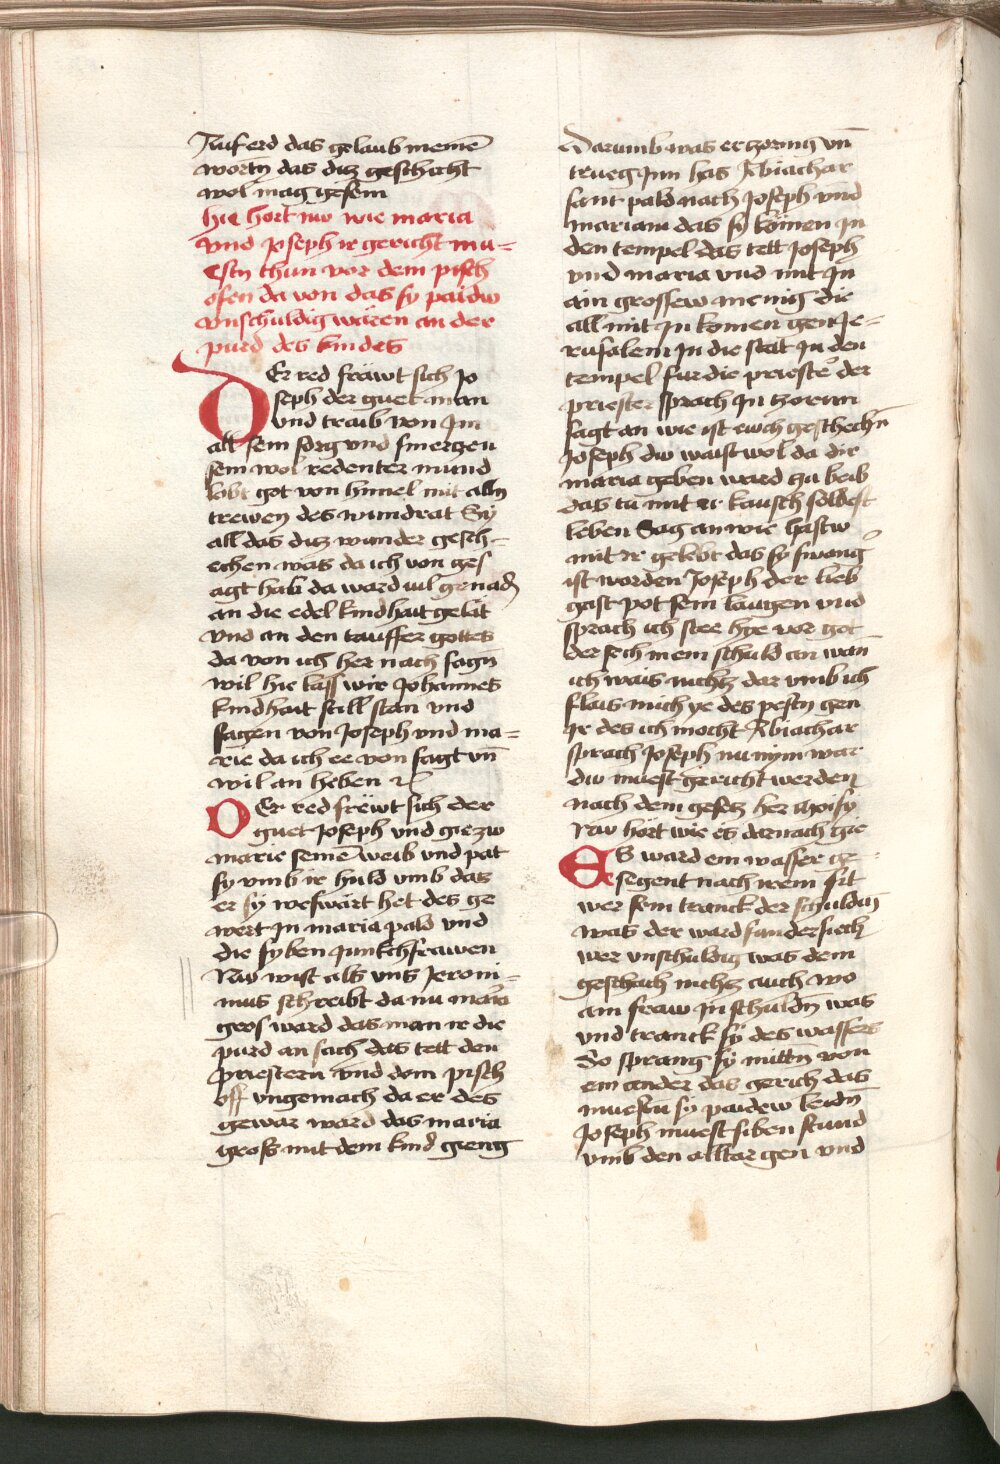 Auf erd das gelaub meinē
wortn̄ das ditz geschicht
wol mag gesein
hie hort nw wie maria
vnd Joseph ir gericht mu-
estn̄ thun vor dem pisch
ofen da von das sy paidw
vnschuldig wären an der
purd des kindes
DEr red fräwt sich Jo
seph der guet man
vnd traib von Im
all sein sorg vnd smertzen
sein wol redenter mund
lobt got von himel mit alln̄
trewen des wundrat Sy
all das ditz wunder gesch-
echen was da ich von ges
agt hab da ward vil genad
an die edel kindhait geläit
vnd an den tauffer gottes
da von ich her nach sagn̄
wil hie lass wir Johannes
kindhait still stan vnd
sagen von Joseph vnd ma-
rie da ich ee von sagt vn̄
wil an heben
DEr red frëwt sich der
guet Joseph vnd gie zw
marie seinē weib vnd pat
sy vmb ir huld vmb das
er syweswärt het des ge
wert In maria pald vnd
die syben Junkchfrawen
Nw wist als vns Jeroni-
mus schreibt da nu maria
gros ward das man ir die
purd an sach das tett den
priestern vnd dem pisch
off vngemach da er des
gewar ward das maria
gross mit dem kind gieng
Darumb was er zornig vn̄
trueg Inn has Abiachar
sant pald nach Joseph vnd
mariam das sy kömen In
den tempel das tett Joseph
vnd maria vnd mit In
ain grossew menig die
all mit In komen gen Je-
rusalem In die stat In den
tempel fur die priester der
priester sprach In zorn
sagt an wie ist ewch geschechn̄
Joseph dw waist wol da dir
maria geben ward zu beib
das tu mit ir kausch soldest
leben Sag an wie hastw
mit ir gelebt das sy swang̛
ist worden Joseph der lieb
gast pot sein laugen vnd
sprach ich stee hye vor got
der sech mein schuld an wan̄
ich wais nichtz dar vmb ich
flais mich ye des pestn̄ gen
Ir des ich mocht Abiachar
sprach Joseph nu nym war
dw muest gericht werden
nach dem gesetz her Moisy
Nw hört wie es darnach gie
ES ward ein wasser ge-
segent nach irem sit
wer sein tranck der schuldig
was der ward sundersiech
wer vnschuldig was dem
geschach nichtz auch wo
ain fraw In schuldn̄ was
vnd tranck sy des wassers
So sprang sy mittn̄ von
ein ander das gerich das
muestn̄ sy paidew leidn̄
Joseph muest siben stund
vmb den alltar gen vnd